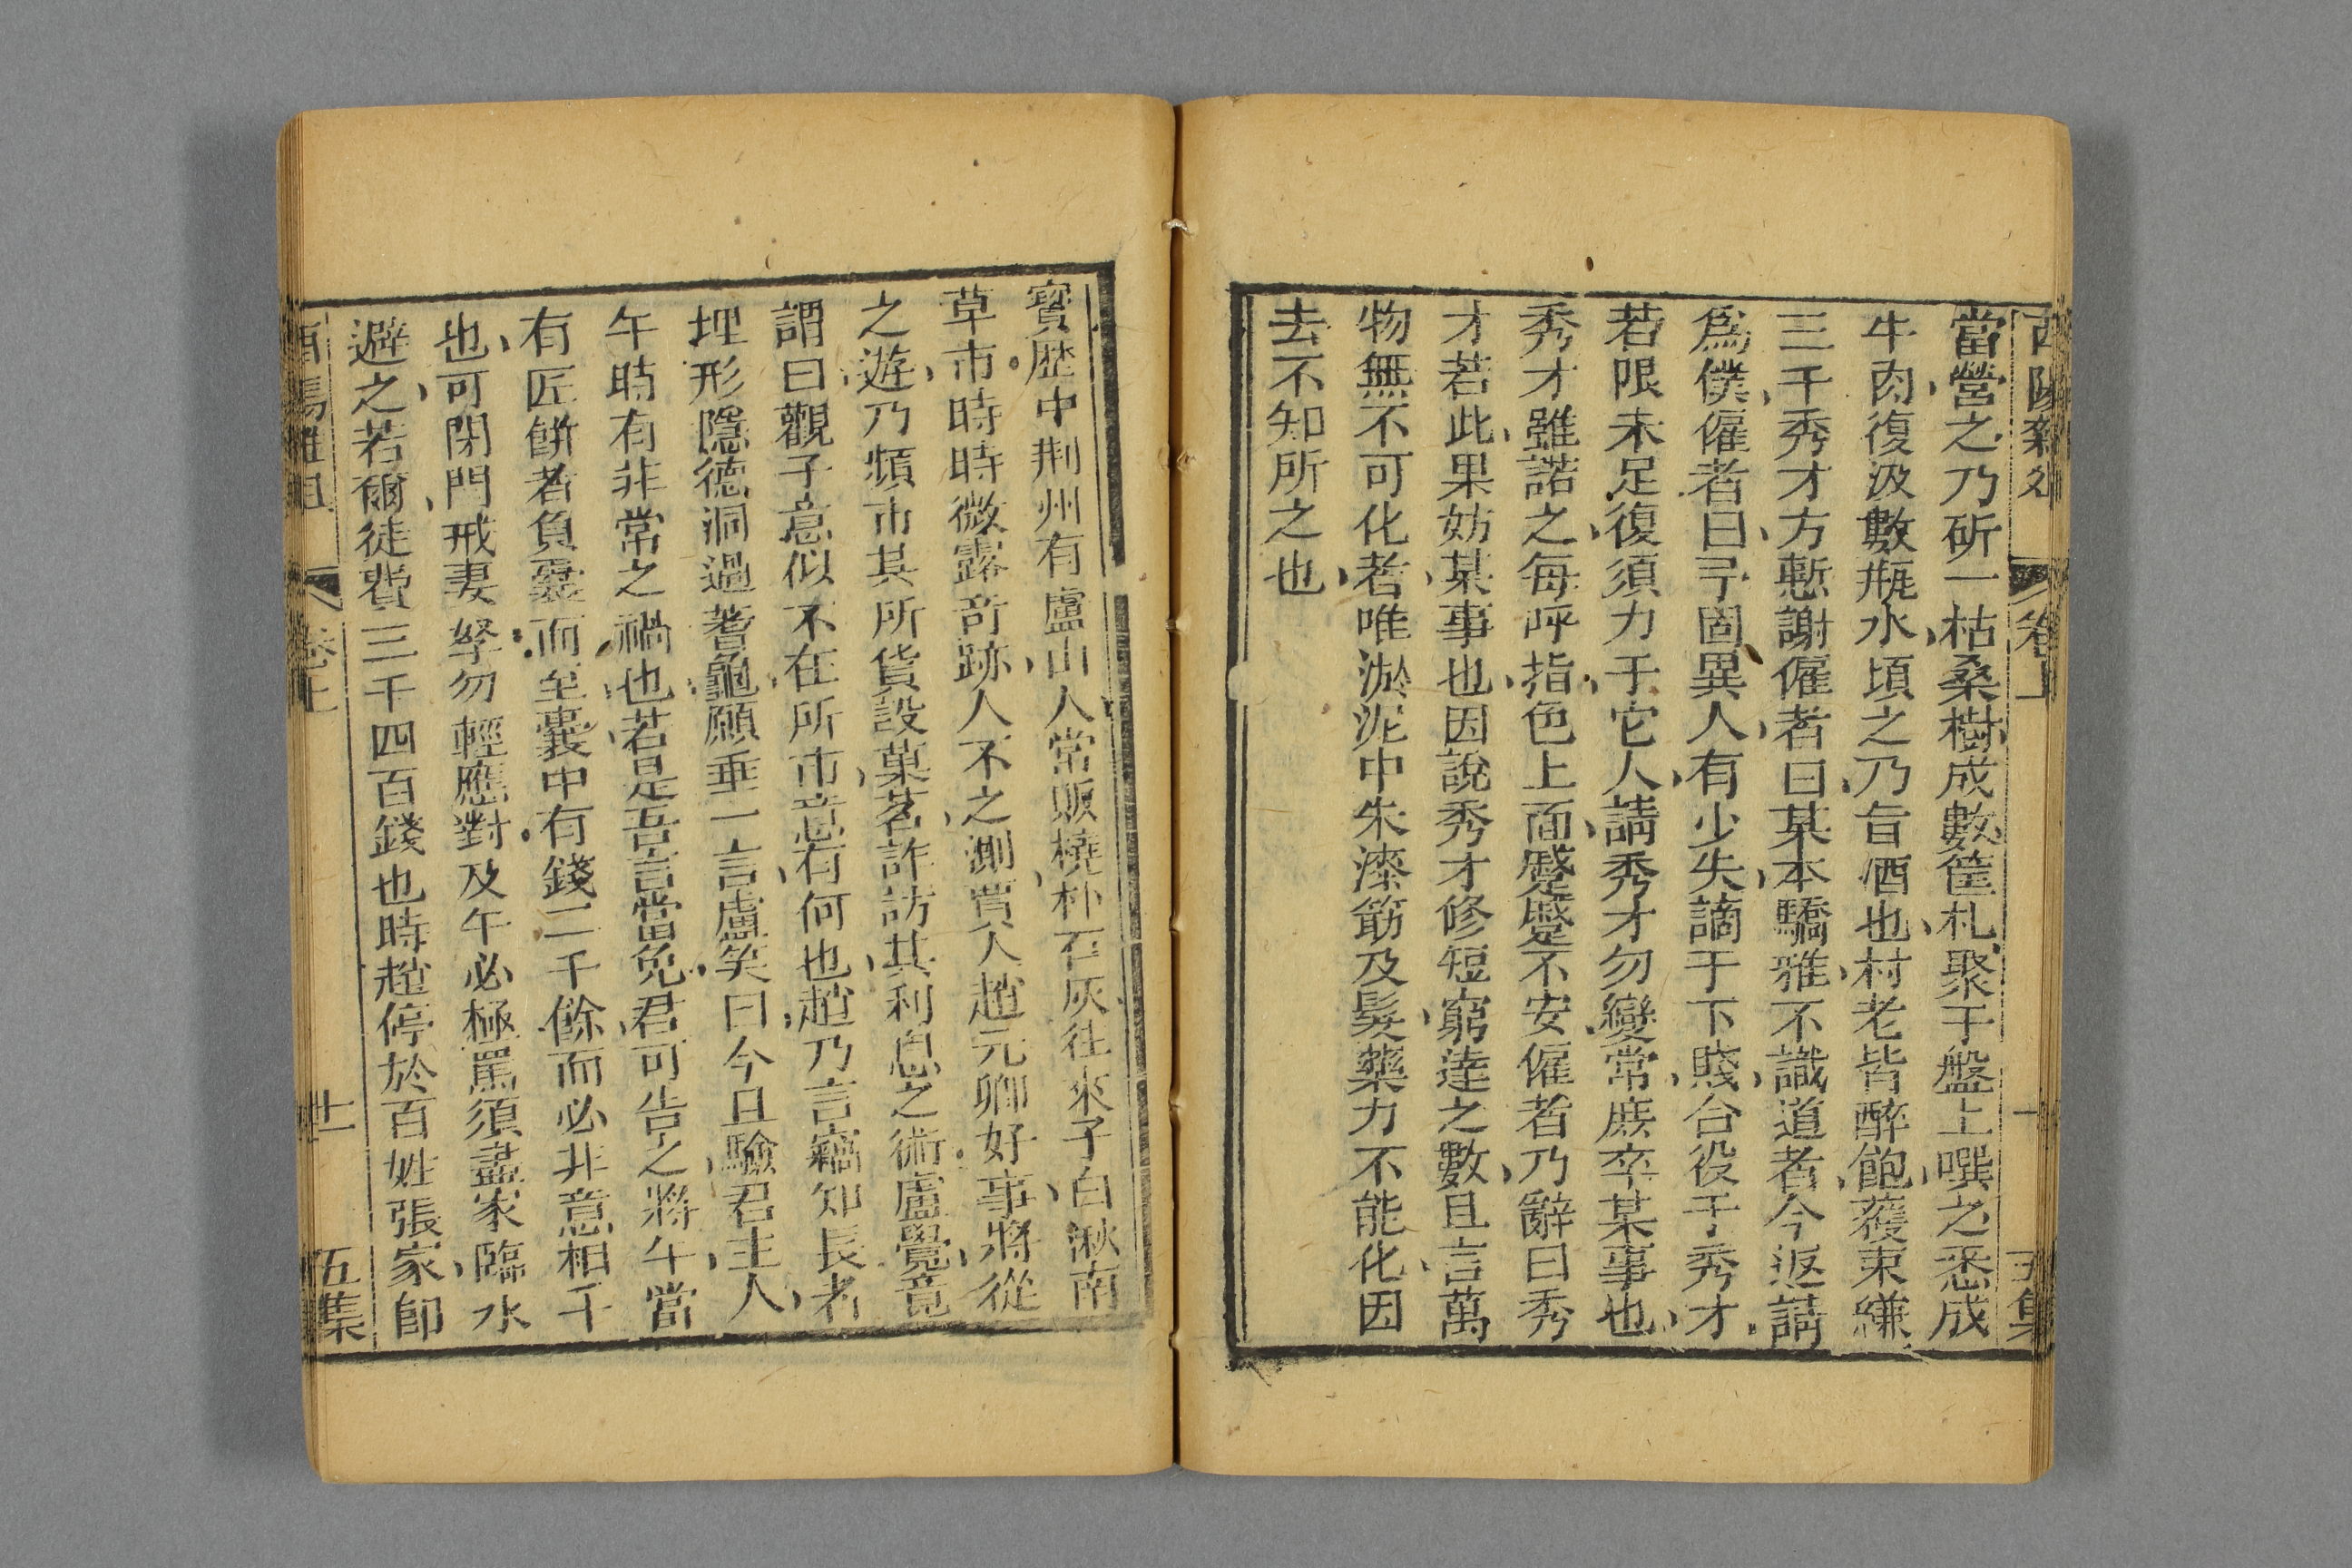 當營之乃斫一枯桑樹成數筐札聚于盤上噀之悉成
牛肉復汲數瓶水頃之乃旨酒也村老皆醉飽獲束縑
三千秀才方慙謝僱者曰某本驕雅不識道者今返請
爲僕僱者曰予固異人有少失謫于下賤合役于秀才
若限未足復須力于它人請秀才勿變常庶卒某事也
秀才雖諾之每呼指色上面蹙蹙不安僱者乃辭曰秀
才若此果妨某事也因說秀才修短窮達之數且言萬
物無不可化者唯淤泥中朱漆筯及髮藥力不能化因
去不知所之也
寶歴中荆州有盧山人常販橈朴石灰往來于白洑南
草市時時微露奇跡人不之測賈人趙元卿好事將從
之遊乃頻市其所貨設菓茗詐訪其利息之術盧覺竟
謂曰觀子意似不在所市意有何也趙乃言竊知長者
埋形隱德洞過蓍龜願垂一言盧笑曰今且驗君主人
午時有非常之禍也若是吾言當免君可告之將午當
有匠餅者負囊而至囊中有錢二千餘而必非意相干
也可閉門戒妻孥勿輕應對及午必極罵須盡家臨水
避之若爾徒費三千四百錢也時趙停於百姓張家卽
卷上
五集